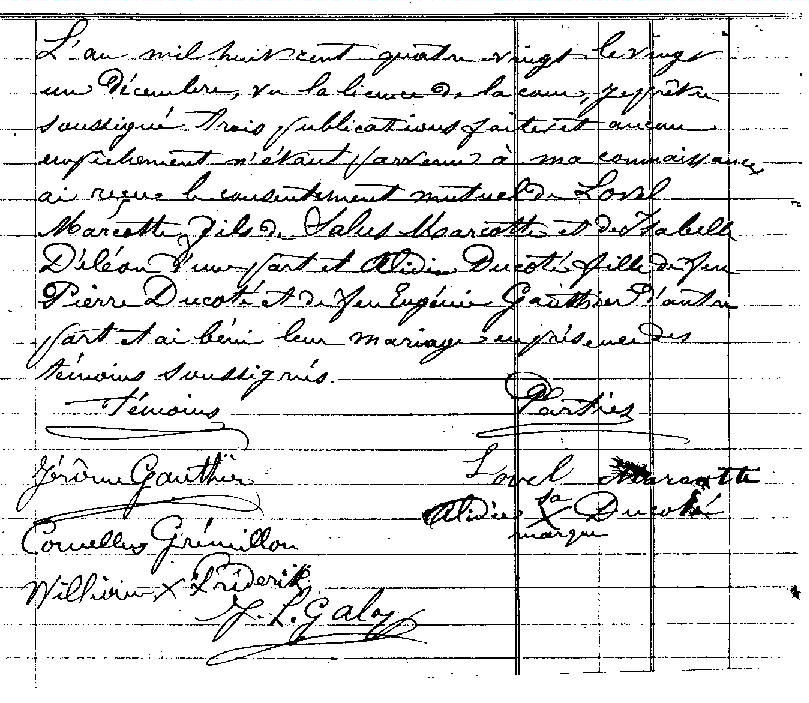 L'an mil huit cent quatre vingt le vingt
un Décembre, vu la licence de la cour, je prêtre
soussigné trois publications faites et aucun
empêchement n'étant parvenu à ma connaissance
ai reçu le consentement mutuel de Lovel
Marcotte, fils de Salus Marcotte et de Isabelle
D'éléon d'une part et Alidie Ducoté fille de feu
Pierre Ducoté et de feu Eugénie Gauthier d'autre
part et ai béni leur mariage en présence des
témoins soussignés.
Témoins Parties
Jérôme Gauthier Lovel Marcotte
Alidie sa X marque Ducoté
Cornellus Grémillon
William X Friderik
J. L. Galoy